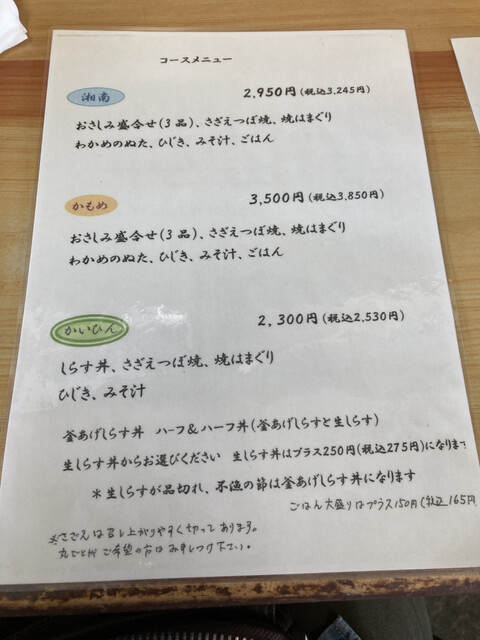 コースメニュー
湘南 2,950円(税込3,245円)
おさしみ盛合せ(3品)、さざえつぼ焼、焼はまぐり
わかめのぬた、ひじき、みそ汁、ごはん
かもめ 3,500円(税込3,850円)
おさしみ盛合せ(3品)、さざえつぼ焼、焼はまぐり
わかめのぬた、ひじき、みそ汁、ごはん
かいひん 2,300円(税込2,530円)
しらす丼、さざえつぼ焼、焼はまぐり
ひじき、みそ汁
釜あげしらす丼 ハーフ&ハーフ丼(釜あげしらすと生しらす)
生しらす丼からお選びください 生しらす丼はプラス250円(税込275円)になります
*生しらすが品切れ、不漁の節は釜あげしらす丼になります
ごはん大盛りはプラス150円(税込165円
※さざえは召し上がりやすく切ってあります。
丸ごとがご希望の方はお申しつけ下さい。